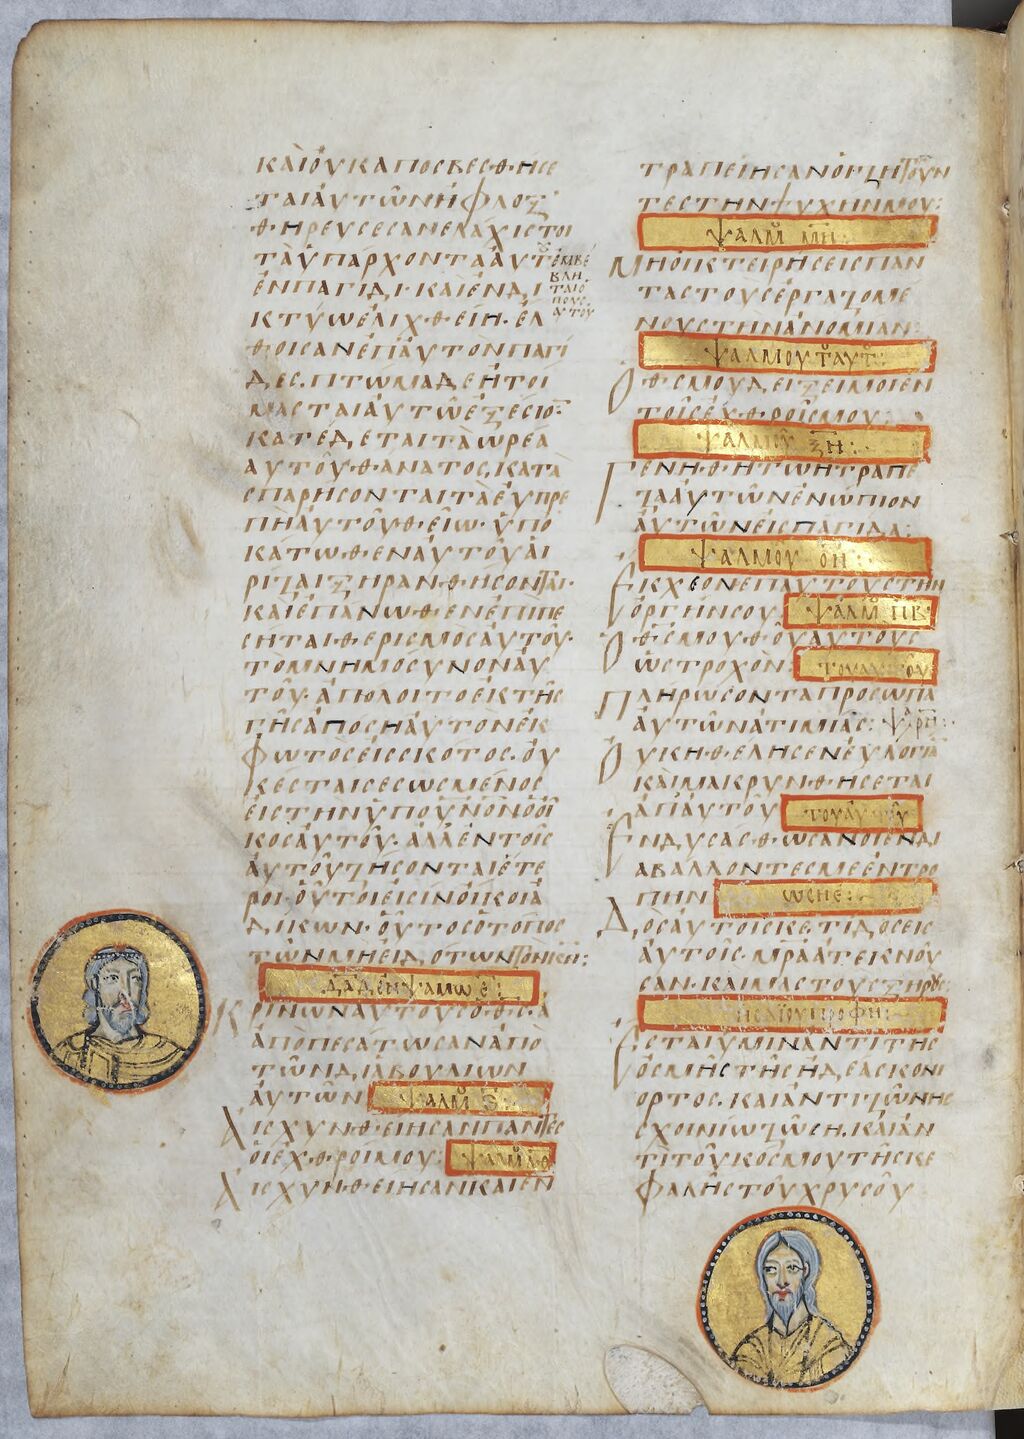 ΚΑΙ ΟΥΚ ΑΠΟΣΒΕΣΘΗΣΕ
ΤΑΙ ΑΥΤΩΝ Η ΦΛΟΞ
ΘΗΡΕΥΣΕΣΑΝ ΕΛΑΧΙΣΤΟΙ
ΤΑ ΥΠΑΡΧΟΝΤΑ ΑΥΤΟΥ
ΕΜΒΕ
ΒΛΗ
ΤΑΙ Ο
ΠΟΥΣ
ΑΥΤΟΥ
ΕΝ ΠΑΓΙΔΙ· ΚΑΙ ΕΝ ΔΙ
ΚΤΥΩ ΕΛΙΧΘΕΙΗ· ΕΛ
ΘΟΙΣΑΝ ΕΠ ΑΥΤΟΝ ΠΑΓΙ
ΔΕΣ· ΠΤΩΜΑ ΔΕ ΗΤΟΙ
ΜΑΣΤΑΙ ΑΥΤΩ ΕΞΕΣΙΟ̅
ΚΑΤΕΔΕΤΑΙ ΤΑ ΩΡΕΑ
ΑΥΤΟΥ ΘΑΝΑΤΟΣ, ΚΑΤΑ
ΣΠΑΡΗΣΟΝΤΑΙ ΤΑ ΕΥΠΡΕ
ΠΗ ΑΥΤΟΥ ΘΕΙΩ· ΥΠΟ
ΚΑΤΩΘΕΝ ΑΥΤΟΥ ΑΙ
ΡΙΖΑΙ ΞΗΡΑΝΘΗΣΟΝΤΑΙ·
ΚΑΙ ΕΠΑΝΩΘΕΝ ΕΠΙΠΕ
ΣΗΤΑΙ ΘΕΡΙΣΜΟΣ ΑΥΤΟΥ·
ΤΟ ΜΝΗΜΟΣΥΝΟΝ ΑΥ
ΤΟΥ· ΑΠΟΛΟΙΤΟ ΕΚ ΤΗΣ
ΓΗΣ ΑΠΟΣΗ ΑΥΤΟΝ ΕΚ
ΦΩΤΟΣ ΕΙΣ ΣΚΟΤΟΣ· ΟΥ
ΚΕΣΤΑΙ ΣΕΣΩΣΜΕΝΟΣ
ΕΙΣ ΤΗΝ ΥΠ ΟΥΝΟΝ Ο ΟΙ
ΚΟΣ ΑΥΤΟΥ· ΑΛΛ ΕΝ ΤΟΙΣ
ΑΥΤΟΥ ΖΗΣΟΝΤΑΙ ΕΤΕ
ΡΟΙ· ΟΥΤΟΙ ΕΙΣΙΝ ΟΙΚΟΙ Α
ΔΙΚΩΝ· ΟΥΤΟΣ Ο ΤΟΠΟΣ
ΤΩΝ ΜΗ ΕΙΔΟΤΩΝ ΤΟΝ Κ̅Ν̅:
ΔΑΔ ΕΝ ΨΑΜΩ Ε:
ΚΡΙΝΩΝ ΑΥΤΟΥΣ Ο Θ̅Σ̅ Α
ΑΠΟΠΕΣΑΤΩΣΑΝ ΑΠΟ
ΤΩΝ ΔΙΑΒΟΥΛΙΩΝ
ΑΥΤΩΝ ΨΑΛΜ ϛ:
ΑΙΣΧΥΝΘΕΙΗΣΑΝ ΠΑΝΤΕΣ
ΟΙ ΕΧΘΡΟΙ ΜΟΥ: ΨΑΛΜ ΛΘ
ΑΙΣΧΥΝΘΕΙΗΣΑΝ ΚΑΙ ΕΝ
ΤΡΑΠΕΙΗΣΑΝ ΟΙ ΖΗΤΟΥΝ
ΤΕΣ ΤΗΝ ΨΥΧΗΝ ΜΟΥ:
ΨΑΛΜ ΜΗ:
ΜΗ ΟΙΚΤΕΙΡΗΣΕΙΣ ΠΑΝ
ΤΑΣ ΤΟΥΣ ΕΡΓΑΖΟΜΕ
ΝΟΥΣ ΤΗΝ ΑΝΟΜΙΑΝ:
ΨΑΛΜΟΥ ΤΟΥ ΑΥΤΟΥ:
Ο Θ̅Σ̅ ΜΟΥ ΔΕΙΞΕΙ ΜΟΙ ΕΝ
ΤΟΙΣ ΕΧΘΡΟΙΣ ΜΟΥ:
ΨΑΛΜΟΥ ΞΗ:
ΓΕΝΗΘΗΤΩ Η ΤΡΑΠΕ
ΖΑ ΑΥΤΩΝ ΕΝΩΠΙΟΝ
ΑΥΤΩΝ ΕΙΣ ΠΑΓΙΔΑ:
ΨΑΛΜΟΥ ΟΗ:
ΕΚΧΕΟΝ ΕΠ ΑΥΤΟΥΣ ΤΗΝ
ΟΡΓΗΝ ΣΟΥ ΨΑΛΜ ΠΒ:
Ο Θ̅Σ̅ ΜΟΥ ΘΟΥ ΑΥΤΟΥΣ
ΩΣ ΤΡΟΧΟΝ: ΤΟΥ ΑΥΤΟΥ
ΠΛΗΡΩΣΟΝ ΤΑ ΠΡΟΣΩΠΑ
ΑΥΤΩΝ ΑΤΙΜΙΑΣ: ΨΑ ΡΗ:
ΟΥΚ ΗΘΕΛΗΣΕΝ ΕΥΛΟΓΙΑ̅
ΚΑΙ ΜΑΚΡΥΝΘΗΣΕΤΑΙ
ΑΠ ΑΥΤΟΥ ΤΟΥ ΑΥΤΟΥ
ΕΝΔΥΣΑΣΘΩΣΑΝ ΟΙ ΕΝΔΙ
ΑΒΑΛΛΟΝΤΕΣ ΜΕ ΕΝΤΡΟ
ΠΗΝ ΩΣΗΕ:
ΔΟΣ ΑΥΤΟΙΣ Κ̅Ε̅ ΤΙ ΔΟΣΕΙΣ
ΑΥΤΟΙΣ· ΜΡΑ ΑΤΕΚΝΟΥ
ΣΑΝ· ΚΑΙ ΜΑΣΤΟΥΣ ΞΗΡΟΥΣ:
ΗΣΑΙΟΥ ΠΡΟΦΗ:
ΕΣΤΑΙ ΥΜΙΝ ΑΝΤΙ ΤΗΣ
ΟΣΜΗΣ ΤΗΣ ΗΔΕΑΣ ΚΟΝΙ
ΟΡΤΟΣ· ΚΑΙ ΑΝΤΙ ΖΩΝΗΣ
ΣΧΟΙΝΙΩ ΖΩΣΗ· ΚΑΙ ΑΝ
ΤΙ ΤΟΥ ΚΟΣΜΟΥ ΤΗΣ ΚΕ
ΦΑΛΗΣ ΤΟΥ ΧΡΥΣΟΥ